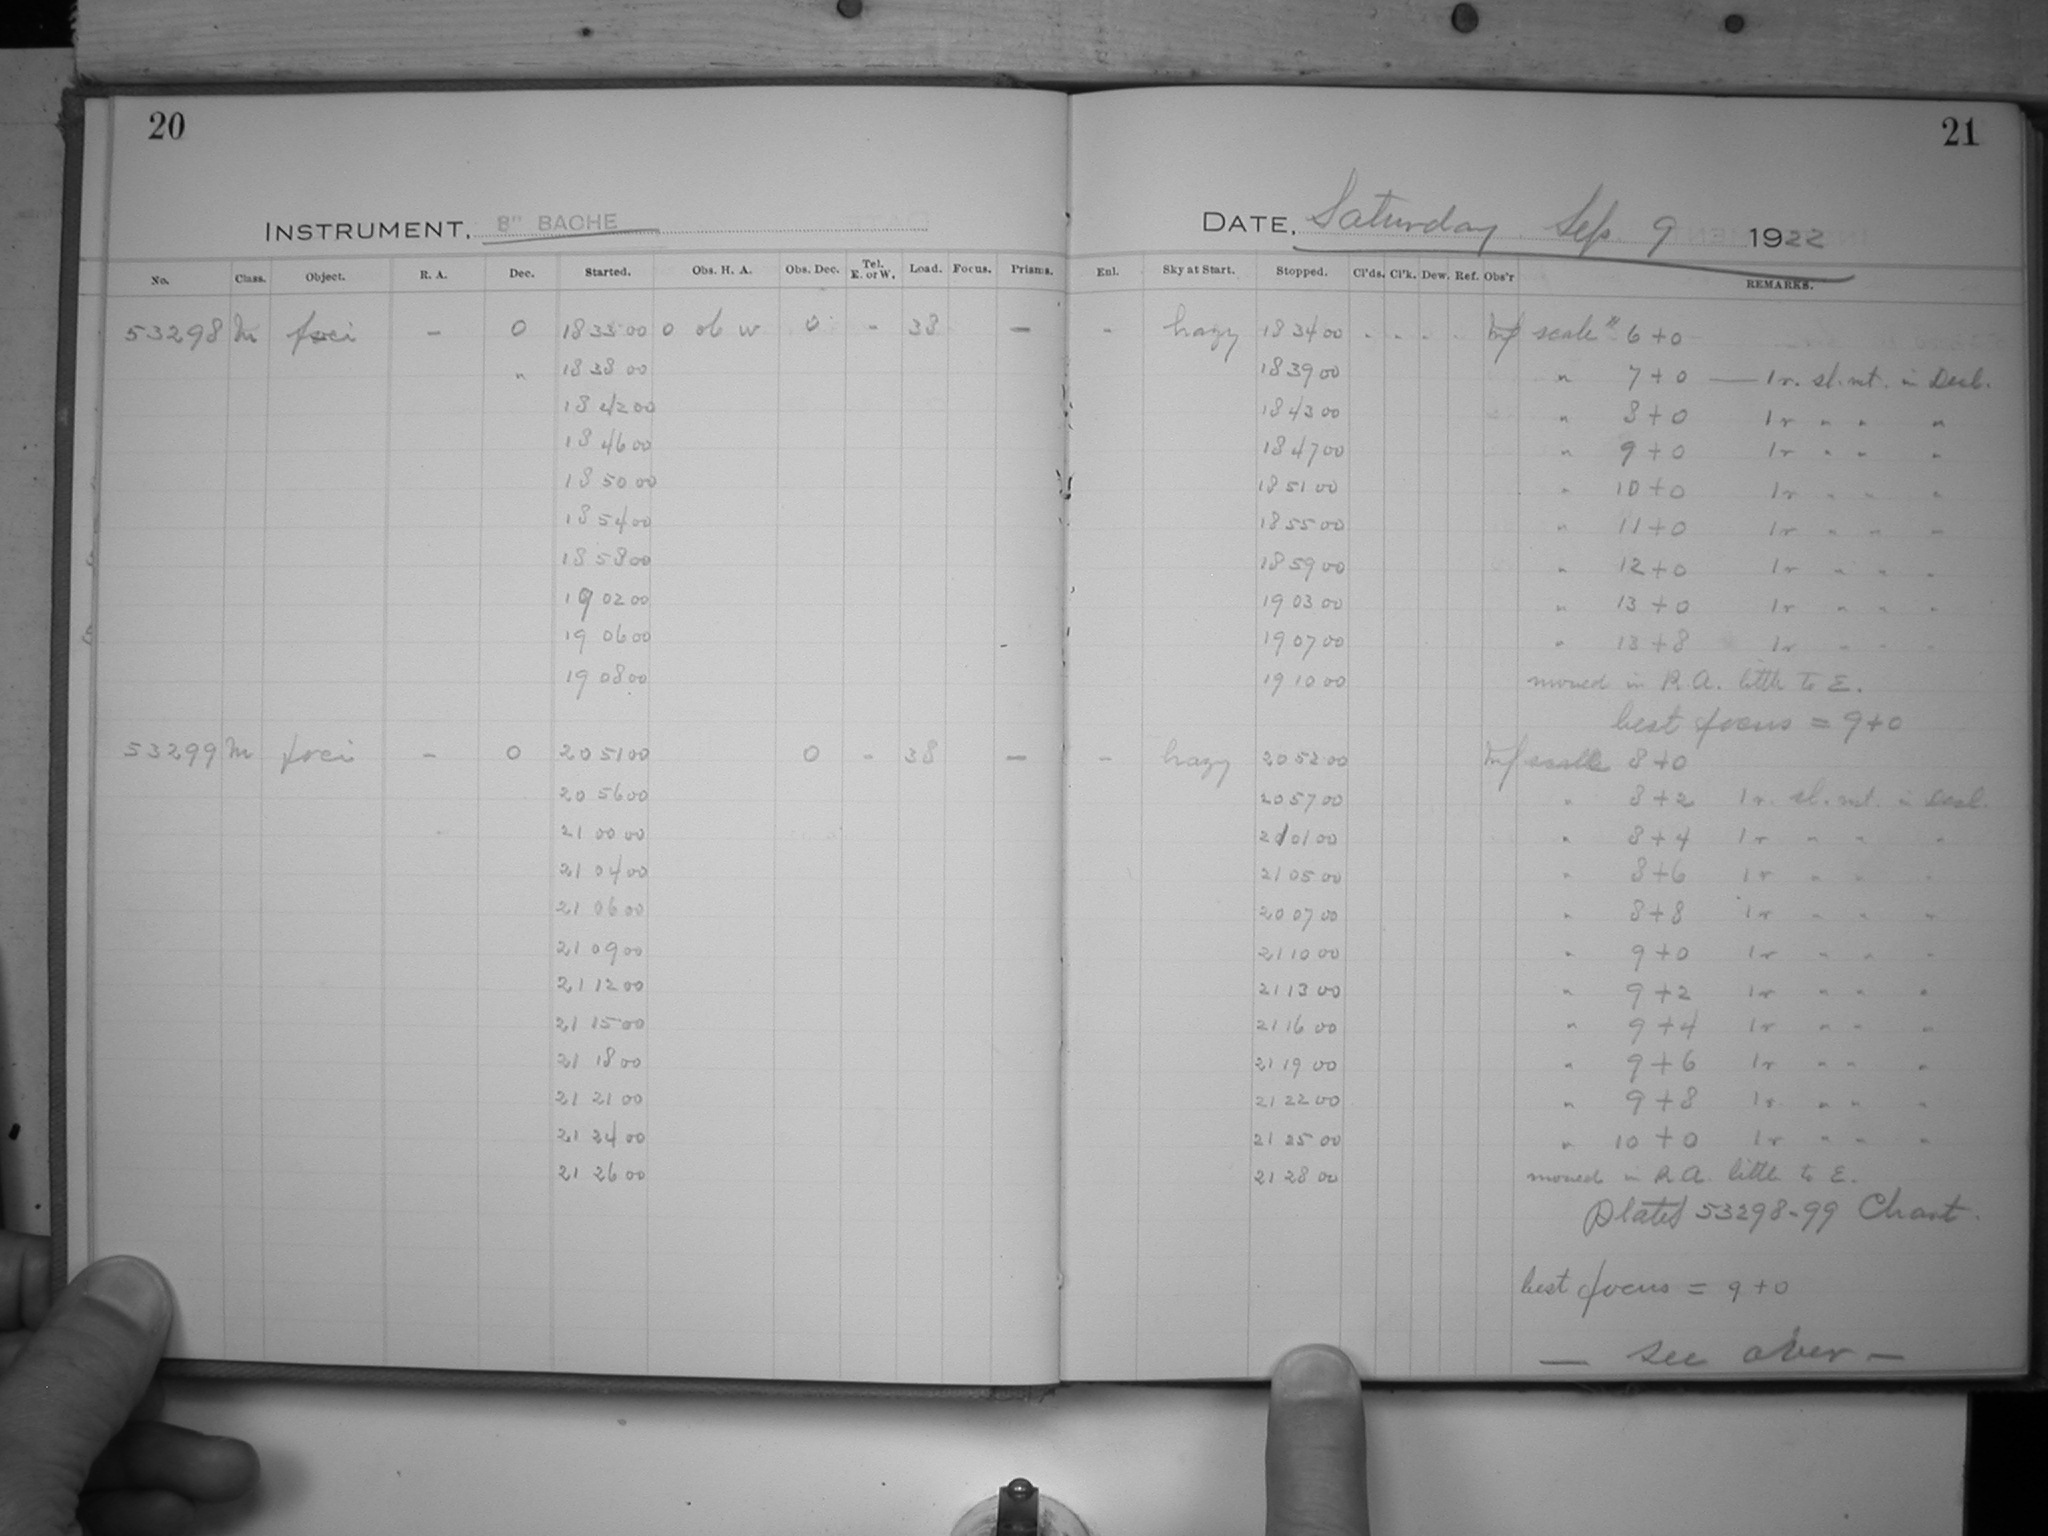 20
21
INSTRUMENT, 8" BACHE
DATE, Saturday Sep. 9 1922
No. Class. Object. R. A. Dec. Started. Obs. H. A. Obs. Dec. Tel. E. or W. Load. Focus. Prisms. Enl. Sky at Start. Stopped. Cl'ds. Cl'k. Dew. Ref. Obs'r REMARKS.
53298 M foci - 0 18 33 00 0 06 w 0 - 38 - - hazy 18 34 00 . . . . scale " 6+0
" 18 38 00 18 39 00 " 7+0 — 1 r. sl. mt. in Decl.
18 42 00 18 43 00 " 8+0 1r " " "
18 46 00 18 47 00 " 9+0 1r " " "
18 50 00 18 51 00 " 10+0 1r " " "
18 54 00 18 55 00 " 11+0 1r " " "
18 58 00 18 59 00 " 12+0 1r " " "
19 02 00 19 03 00 " 13+0 1r " " "
19 06 00 19 07 00 " 13+8 1r " " "
19 08 00 19 10 00 moved in R.A. little to E.
best focus = 9+0
53299 M foci - 0 20 51 00 0 - 38 - - hazy 20 52 00 scale 8+0
20 56 00 20 57 00 " 8+2 1 r. sl. mt. in Decl.
21 00 00 21 01 00 " 8+4 1r " " "
21 04 00 21 05 00 " 8+6 1r " " "
21 06 00 20 07 00 " 8+8 1r " " "
21 09 00 21 10 00 " 9+0 1r " " "
21 12 00 21 13 00 " 9+2 1r " " "
21 15 00 21 16 00 " 9+4 1r " " "
21 18 00 21 19 00 " 9+6 1r " " "
21 21 00 21 22 00 " 9+8 1r " " "
21 24 00 21 25 00 " 10+0 1r " " "
21 26 00 21 28 00 moved in R.A. little to E.
Plates 53298-99 Chart.
best focus = 9+0
— see over —